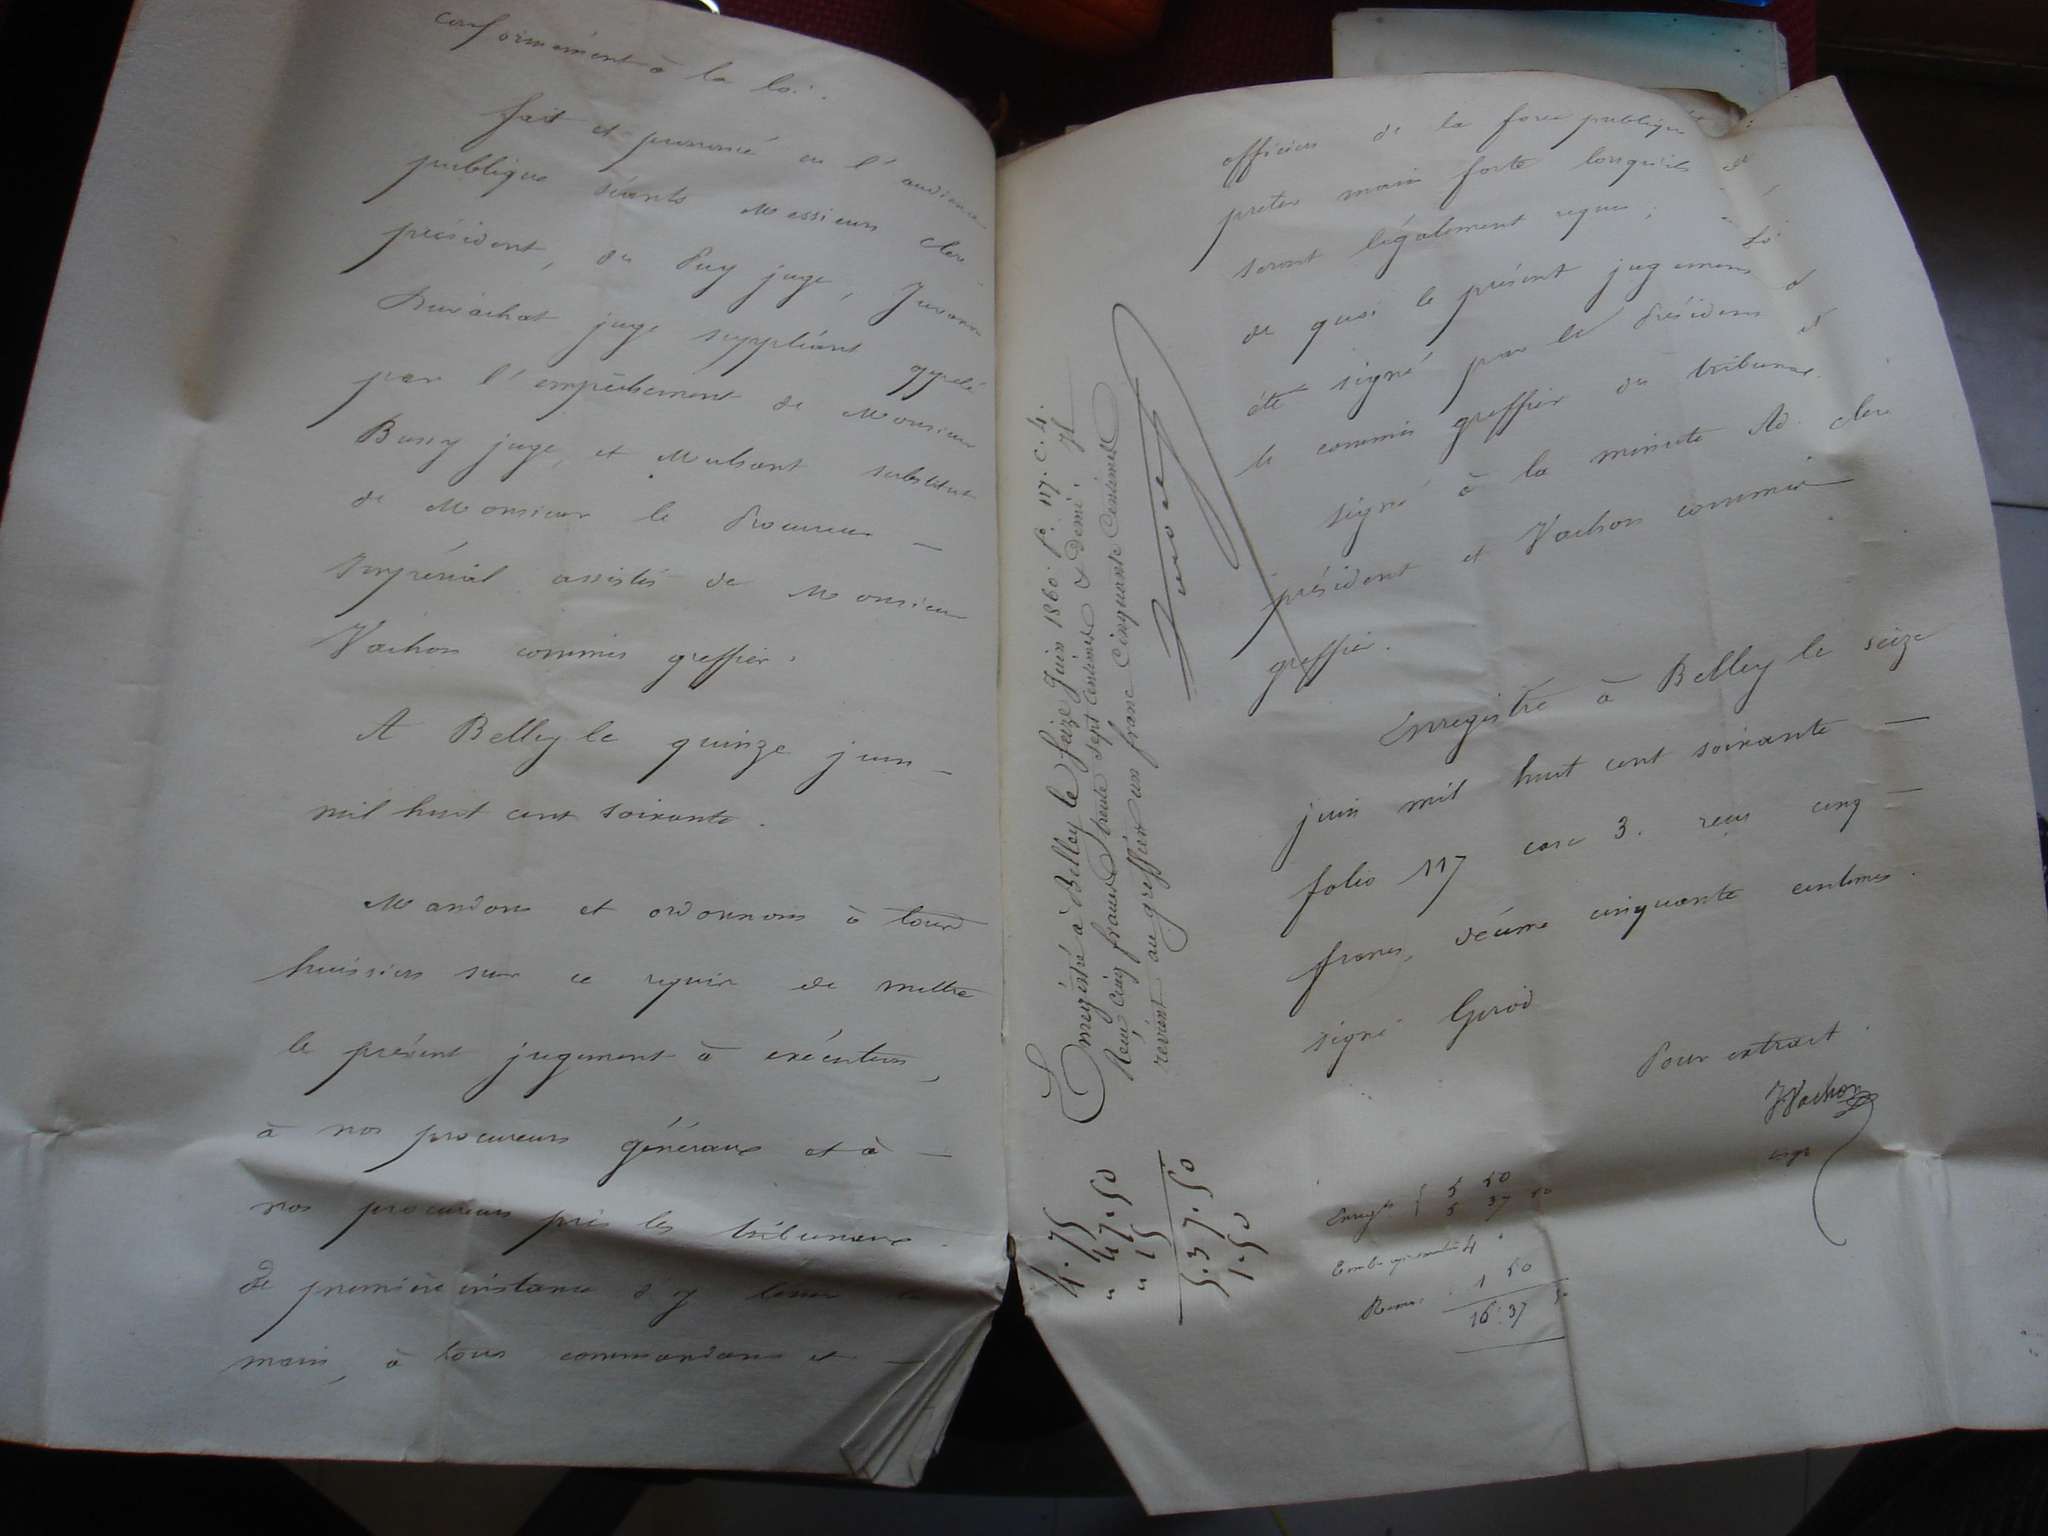 conformément à la loi.
fait et prononcé en l'audience
publique séants Messieurs Clerc
président, du Puy juge,
juge suppléant appelé
par l'empêchement de Monsieur
Bussy juge, et Mulsant substitut
de Monsieur le Procureur —
Impérial assistés de Monsieur
Vachon commis greffier.
A Belley le quinze juin —
mil huit cent soixante.
Mandons et ordonnons à tous
huissiers sur ce requis de mettre
le présent jugement à exécution,
à nos procureurs généraux et à —
nos procureurs près les tribunaux
de première instance d'y tenir la
main, à tous commandans et —
officiers de la force publique de
preter main forte lorsqu'ils en
seront légalement requis;
de quoi le présent jugement a
été signé par le Président et
le commis greffier du tribunal.
signé à la minute Ad. Clerc
président et Vachon commis
greffier.
Enregistré à Belley le seize
juin mil huit cent soixante —
folio 117 case 3. reçu cinq —
francs, décime cinquante centimes.
signé Girod
Pour extrait
Vachon
Enregt 5 50
5 37 50
4
1 50
16.37 50
Enregistré à Belley le Seize Juin 1860. f° 117. C. 4.
Reçu cinq francs trente sept centimes & demi.
revient au greffier un franc Cinquante Centimes
4.75
" 47.50
" 15
5.37.50
1.50